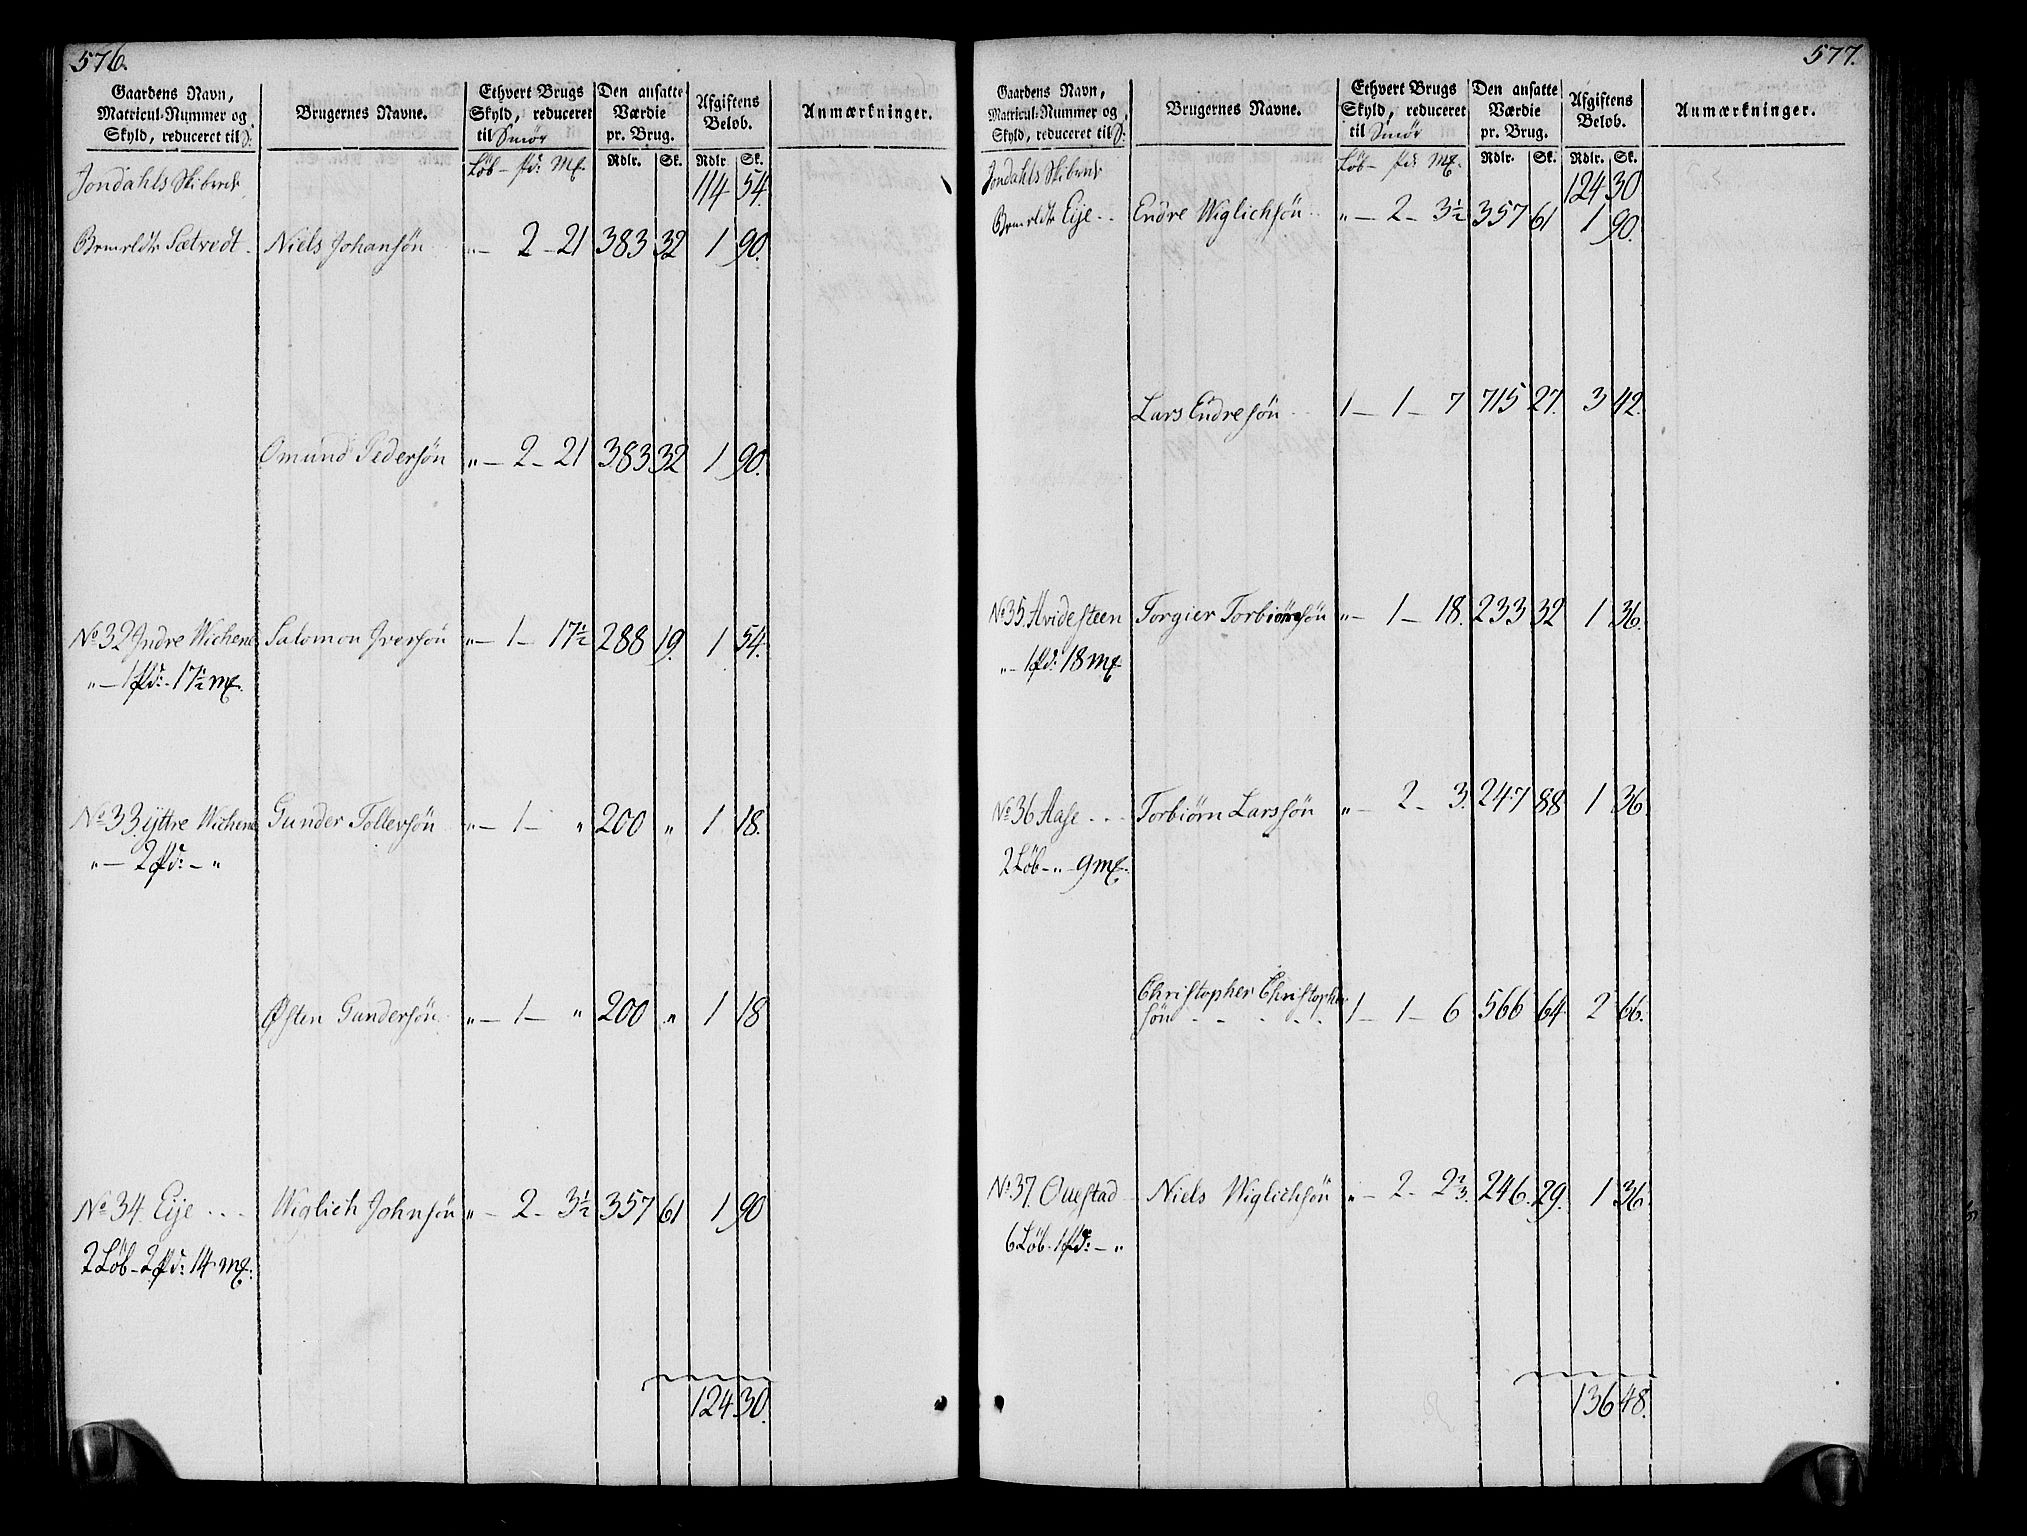 576.
Gaardens Navn, Matricul-Nummer og Skyld, reduceret til S: | Brugernes Navne. | Ethvert Brugs Skyld, reduceret til Smör | Den ansatte Værdie pr. Brug. | Afgiftens Beløb. | Anmærkninger.
Löb — Pd: Mk. | Rdlr. | Sk. | Rdlr | Sk.
Jondahls Skibrede | 114 | 54.
Sætvedt | Niels Johansön | " — 2 - 21 | 383 | 32 | 1 | 90.
Omund Pedersön | " — 2 - 21 | 383 | 32 | 1 | 90.
No 32 Indre Wichene | Salomon Iversön | " — 1 - 17½ | 288 | 19. | 1 | 54.
" — 1 Pd: - 17½ mk.
No 33. yttre Wichene | Gunder Tollersön | " — 1 — " | 200 | " | 1 | 18.
" — 2 Pd: — "
Østen Gundersön | " — 1 — " | 200 | " | 1 | 18
No 34. Eije . . . | Wiglich Johnsön | " — 2 - 3½ | 357 | 61 | 1 | 90
2 Löb - 2 Pd: 14 mk.
124 | 30.
577.
Gaardens Navn, Matricul-Nummer og Skyld, reduceret til S: | Brugernes Navne. | Ethvert Brugs Skyld, reduceret til Smör | Den ansatte Værdie pr. Brug. | Afgiftens Beløb. | Anmærkninger.
Löb — Pd: Mk. | Rdlr. | Sk. | Rdlr. | Sk.
Jondahls Skibrede | 124 | 30
Eije . . | Endre Wiglichsön . . | " — 2 - 3½ | 357 | 61 | 1 | 90.
Lars Endresön . . | 1 — 1 — 7 | 715 | 27. | 3 | 42.
No 35. Hvidesteen | Torgier Torbiörnsön | " — 1 — 18. | 233 | 32 | 1 | 36.
" — 1 Pd: 18 mk
No 36 Aase . . . | Torbiörn Larssön | " — 2 - 3. | 247 | 88 | 1 | 36.
2 Löb - " - 9 mk.
Christopher Christopher
sön - - - - - | 1 — 1 — 6 | 566 | 64 | 2 | 66.
No 37. Ouestad | Niels Wiglichsön | " — 2 - 2⅔. | 246. | 29. | 1 | 36.
6 Löb - 1 Pd: — "
136 | 48.